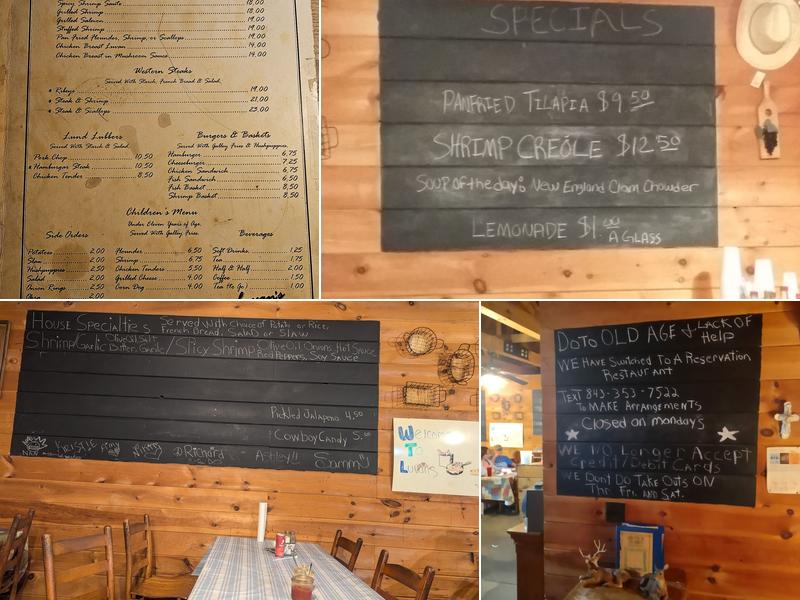 Spicy Shrimp Saute 18.00
Grilled Shrimp 18.00
Grilled Salmon 19.00
Stuffed Shrimp 19.00
Pan Fried Flounder, Shrimp, or Scallops 19.00
Chicken Breast Luvan 14.00
Chicken Breast in Mushroom Sauce 14.00
Western Steaks
Served With Starch, French Bread & Salad
* Ribeye 19.00
* Steak & Shrimp 21.00
* Steak & Scallops 23.00
Lund Lubbers
Served With Starch & Salad
Pork Chop 10.50
* Hamburger Steak 10.50
Chicken Tender 8.50
Burgers & Baskets
Served With Galley Fries & Hushpuppies
Hamburger 6.75
Cheeseburger 7.25
Chicken Sandwich 6.75
Fish Sandwich 6.50
Fish Basket 8.50
Shrimp Basket 8.50
Children's Menu
Under Eleven Years of Age
Served With Galley Fries
Side Orders
Potatoes 2.00
Slaw 2.00
Hushpuppies 2.50
Salad 2.00
Onion Rings 2.50
Flounder 6.50
Shrimp 6.75
Chicken Tenders 5.50
Grilled Cheese 4.00
Corn Dog 4.00
Beverages
Soft Drinks 1.25
Tea 1.75
Half & Half 2.00
Coffee 1.50
Tea (To Go) 1.00
SPECIALS
PANFRIED TILAPIA $9.50
SHRIMP CREOLE $12.50
SOUP OF the day: New England Clam Chowder
LEMONADE $1.00
A GLASS
House Specialties Served With Choice of Potato or Rice,
French Bread, SALAD or SLAW
Shrimp Garlic Olive Oil, Salt, Butter, Garlic / Spicy Shrimp Olive Oil Onions Hot Sauce
Red Peppers, Soy Sauce
Pickled Jalapeno 4.50
Cowboy Candy 5.00
Kristie
Richard
Ashley!!
Sammy
Welcome
To
Luvans
Do To OLD AGE & LACK OF
Help
WE HAVE Switched To A Reservation
RESTAURANT
TEXT 843-353-7522
To MAKE ArrangEMENTS
CLosed on monday's
WE NO Longer Accept
Credit/Debit Cards
WE Dont Do TAKE OutS ON
Thr. Fri. AND SAT.